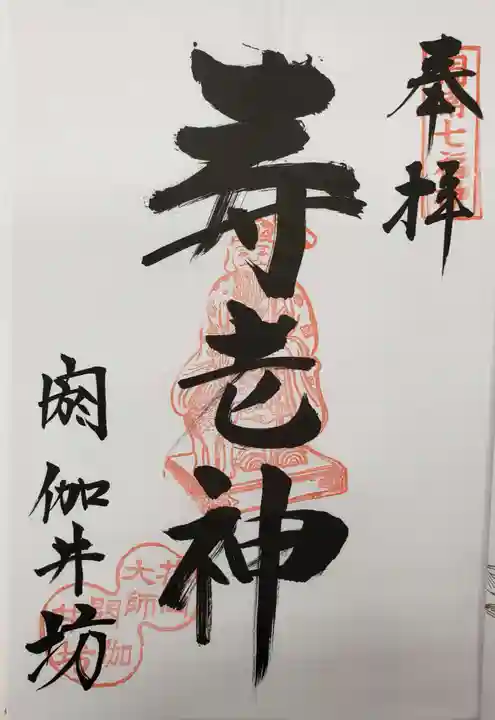 奉拝
寿老神
閼伽井坊
大師
閼伽
井坊